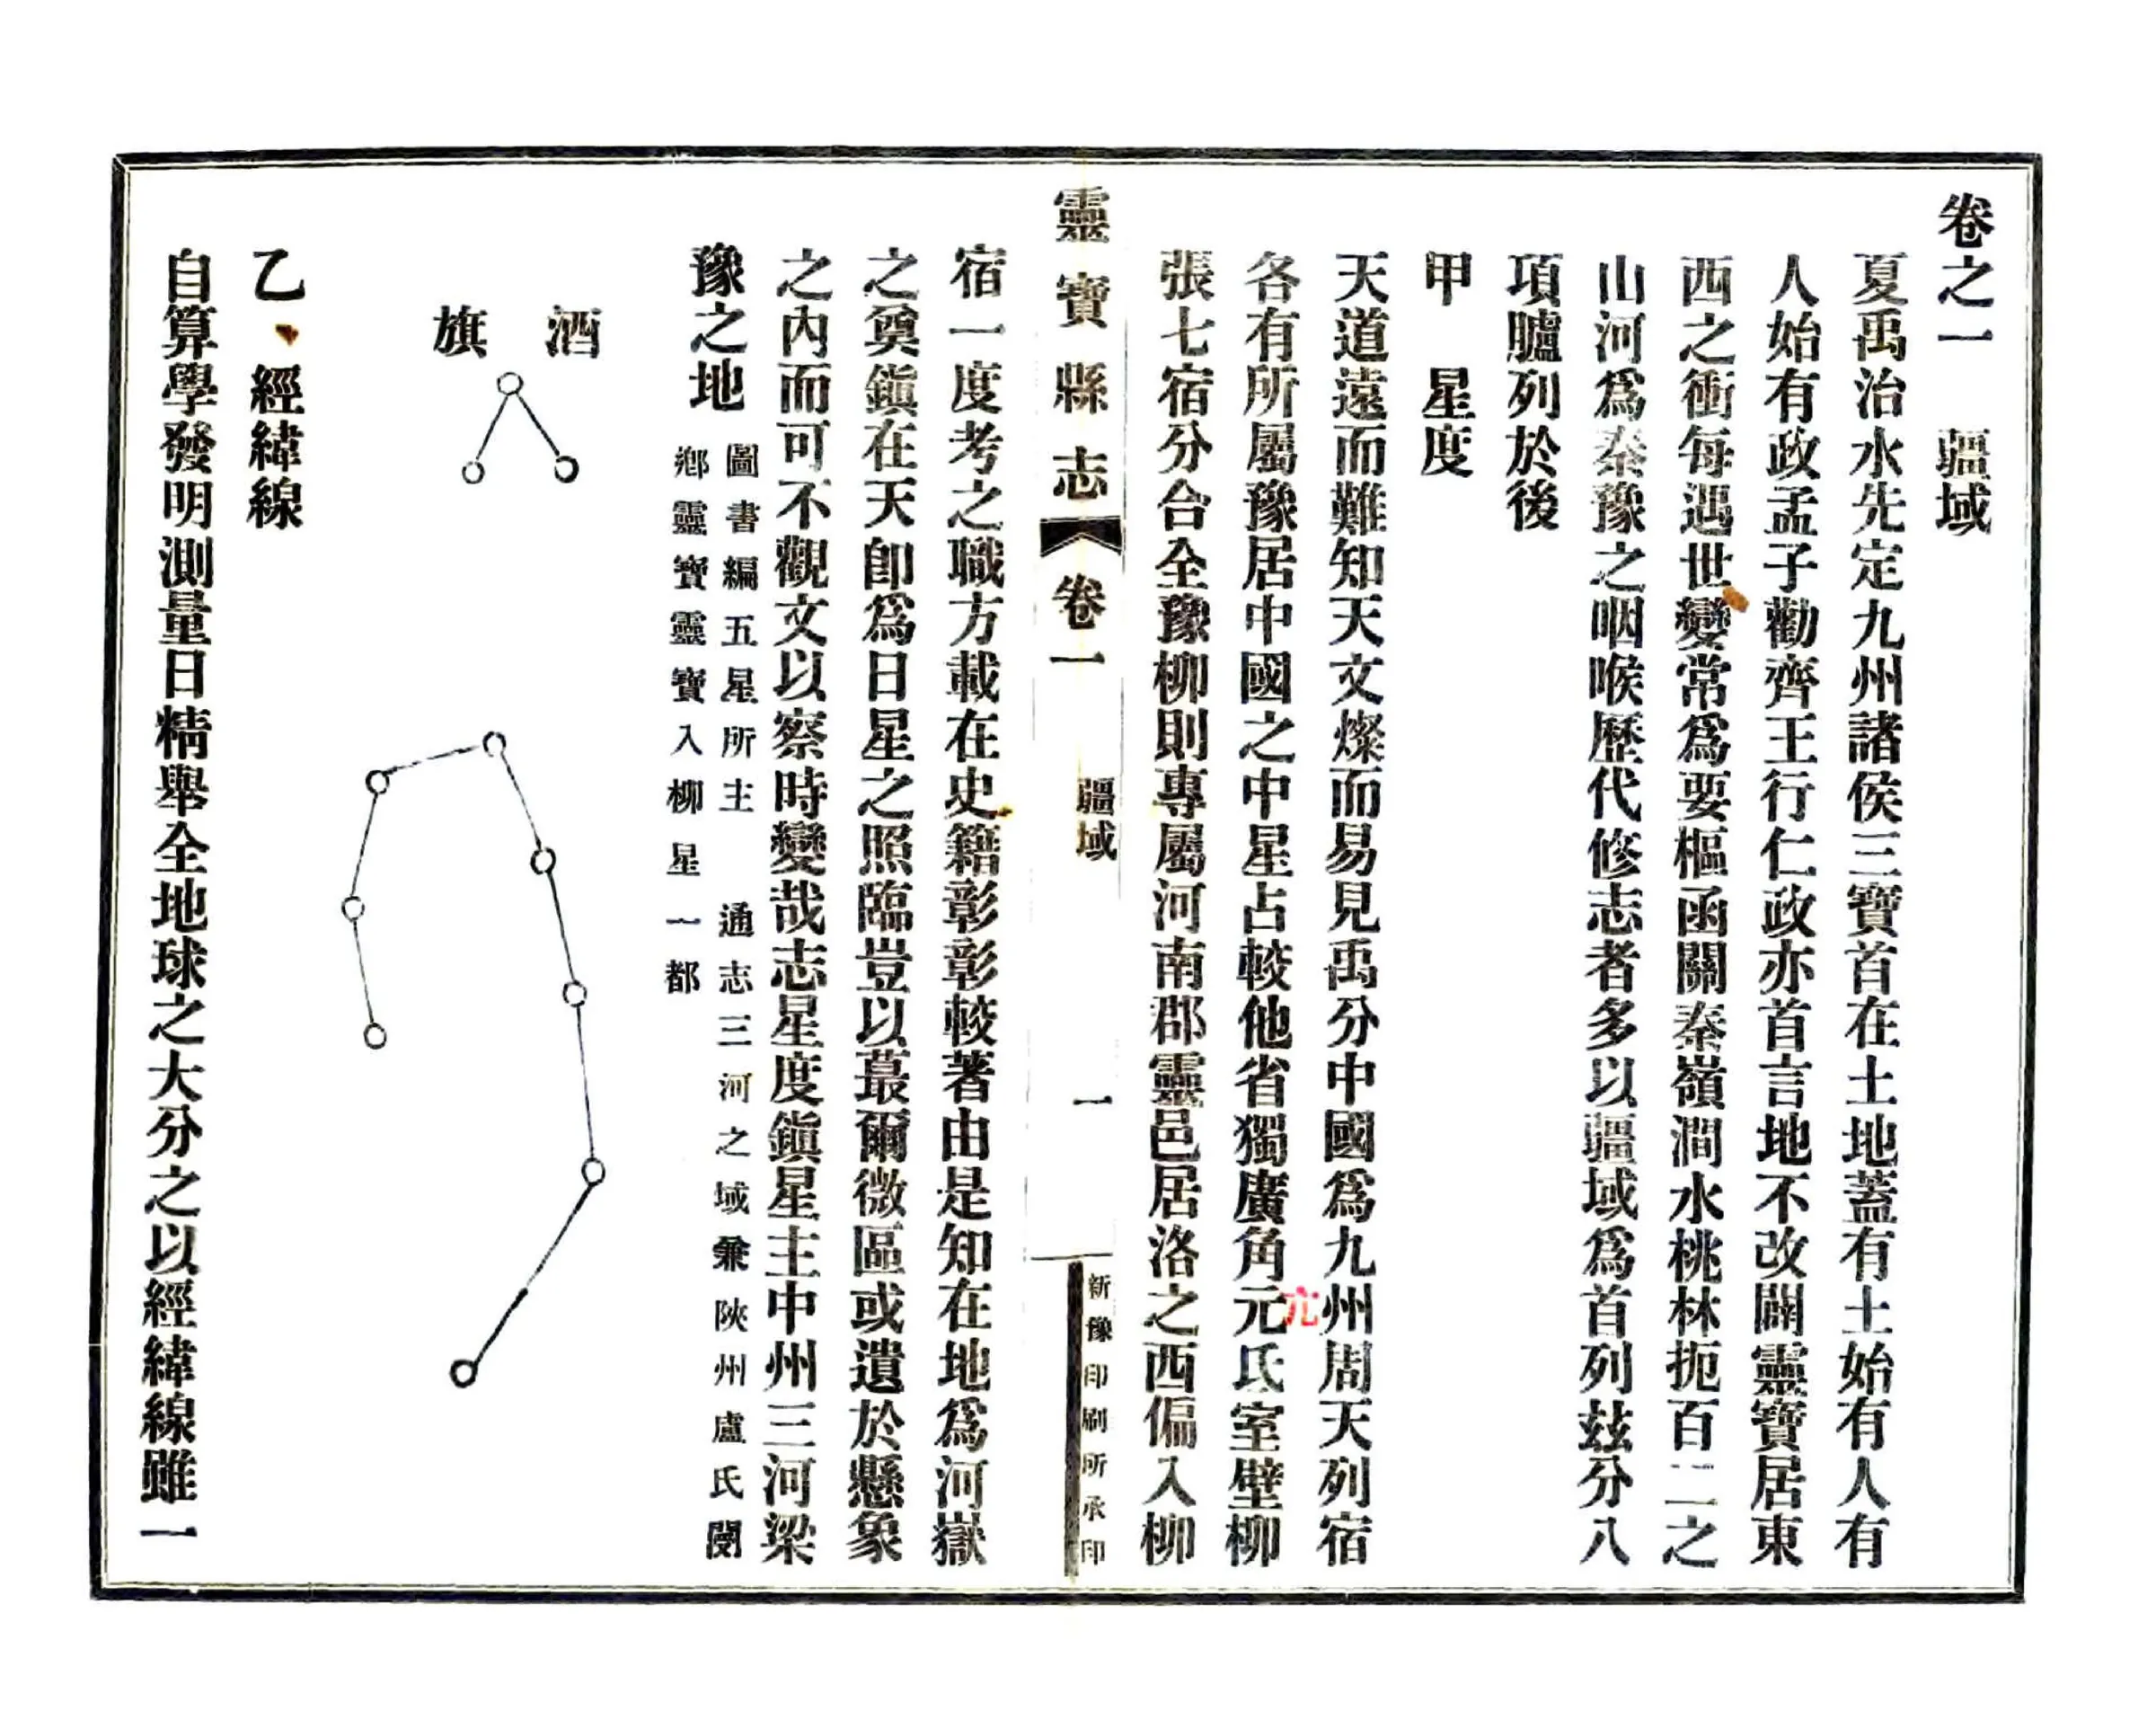 卷之一　疆域
夏禹治水先定九州諸侯三寶首在土地蓋有土始有人有
人始有政孟子勸齊王行仁政亦首言地不改闢靈寶居東
西之衝每遇世變常爲要樞函關秦嶺澗水桃林扼百二之
山河爲秦豫之咽喉歷代修志者多以疆域爲首列玆分八
項臚列於後
甲　星度
天道遠而難知天文燦而易見禹分中國爲九州周天列宿
各有所屬豫居中國之中星占較他省獨廣角元氐室壁柳
亢
張七宿分合全豫柳則專屬河南郡靈邑居洛之西偏入柳
靈寶縣志　卷一　疆域　一　新豫印刷所承印
宿一度考之職方載在史籍彰彰較著由是知在地爲河嶽
之奠鎭在天卽爲日星之照臨豈以蕞爾微區或遺於懸象
之內而可不觀文以察時變哉志星度鎭星主中州三河梁
豫之地
圖書編五星所主　通志三河之域兼陝州盧氏閿
鄕靈寶靈寶入柳星一都
酒旗
乙　經緯線
自算學發明測量日精舉全地球之大分之以經緯線雖一